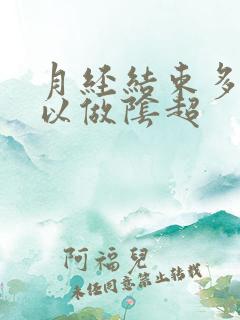 月經結束多
以做陰超
阿福兒
未经同意禁止转载